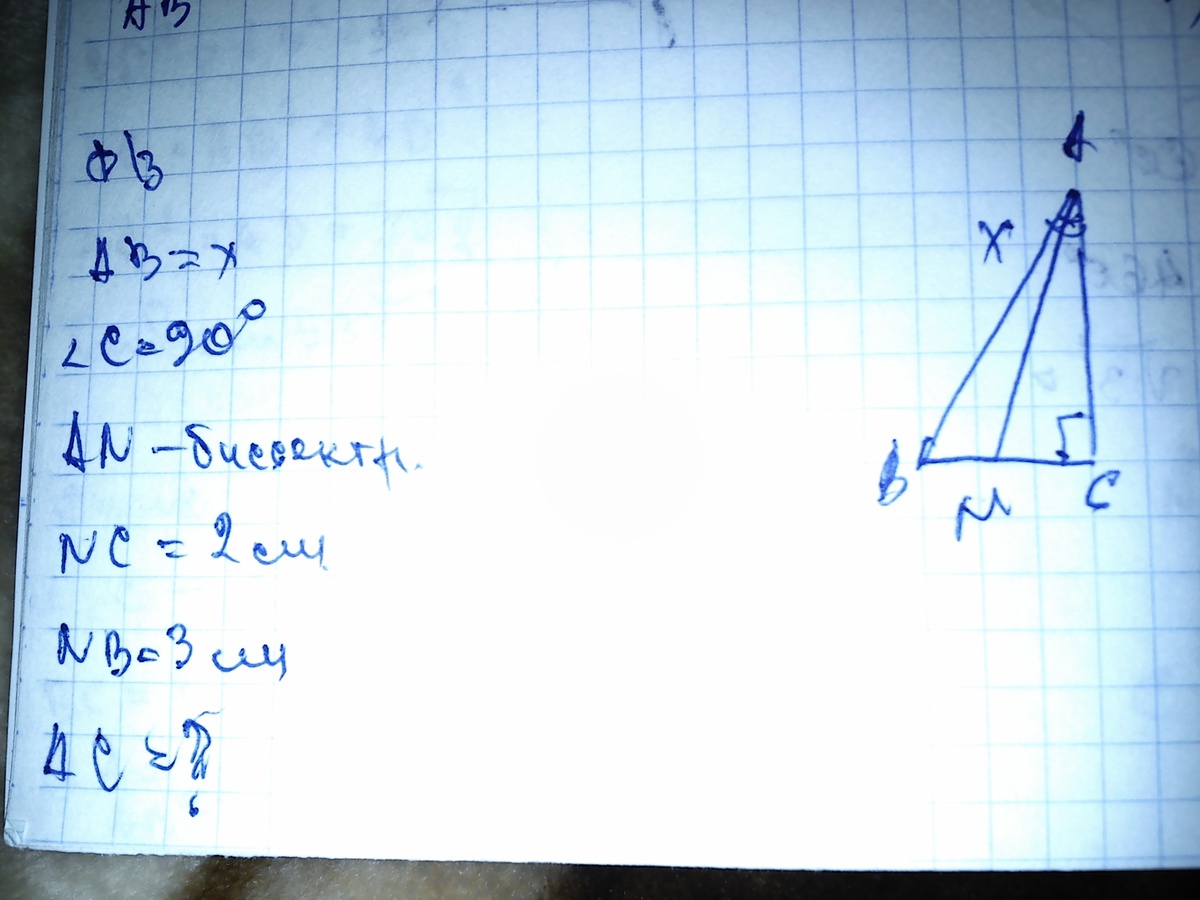 AB
AB = x
∠C = 90°
AN – биссектр.
NC = 2 см
NB = 3 см
AC = ?
A
x
B
N
C